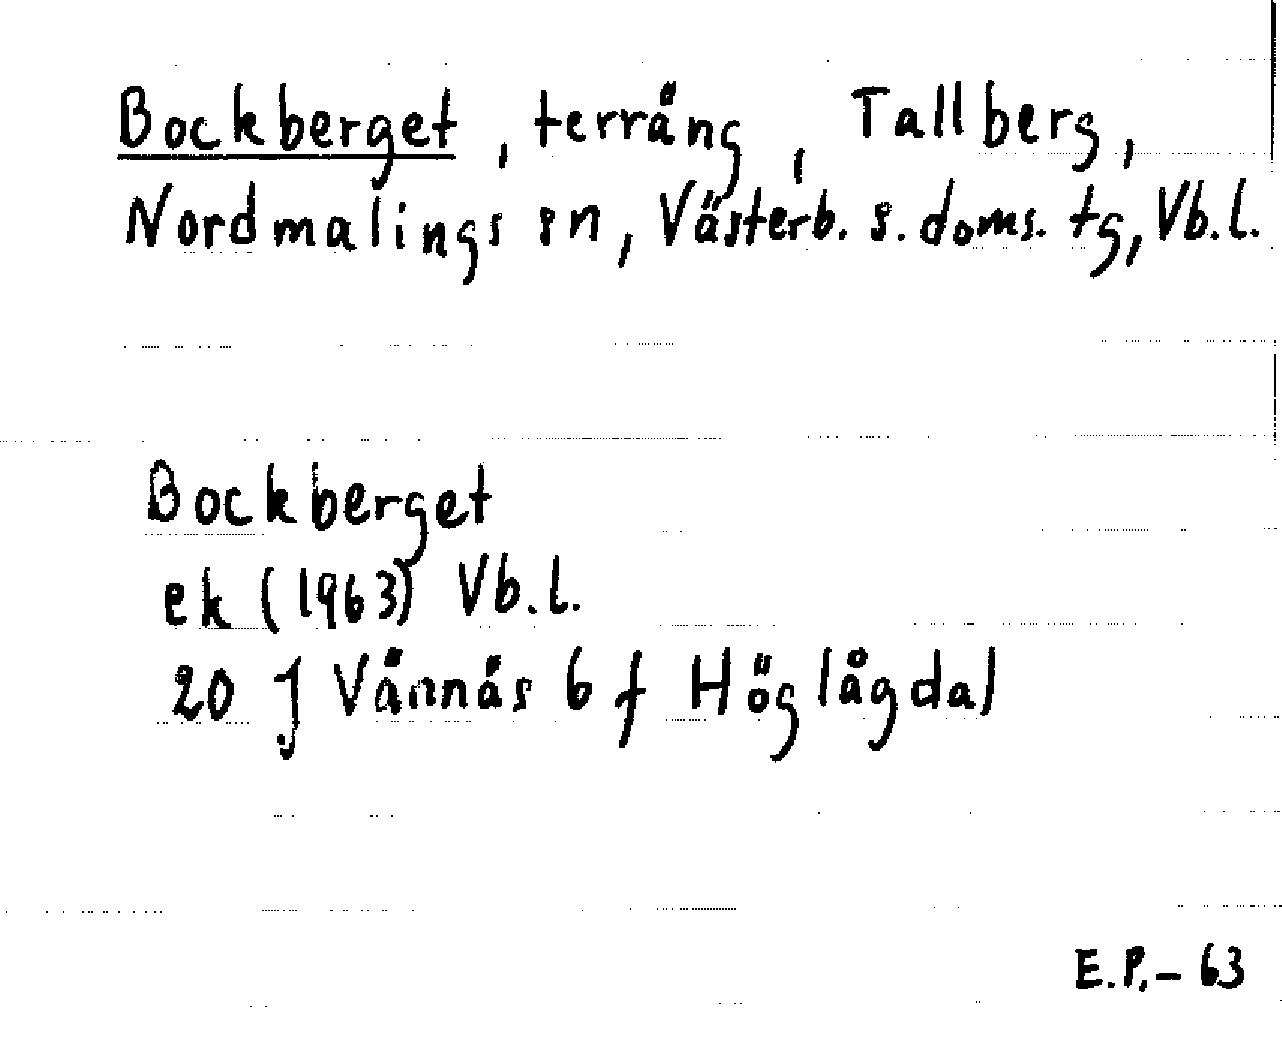 Bockberget, terräng, Tallberg,
Nordmalings sn, Västerb. s. doms. tg, Vb.l.
Bockberget
ek (1963) Vb.l.
20 J Vännäs 6 f Höglågdal
E.P.-63